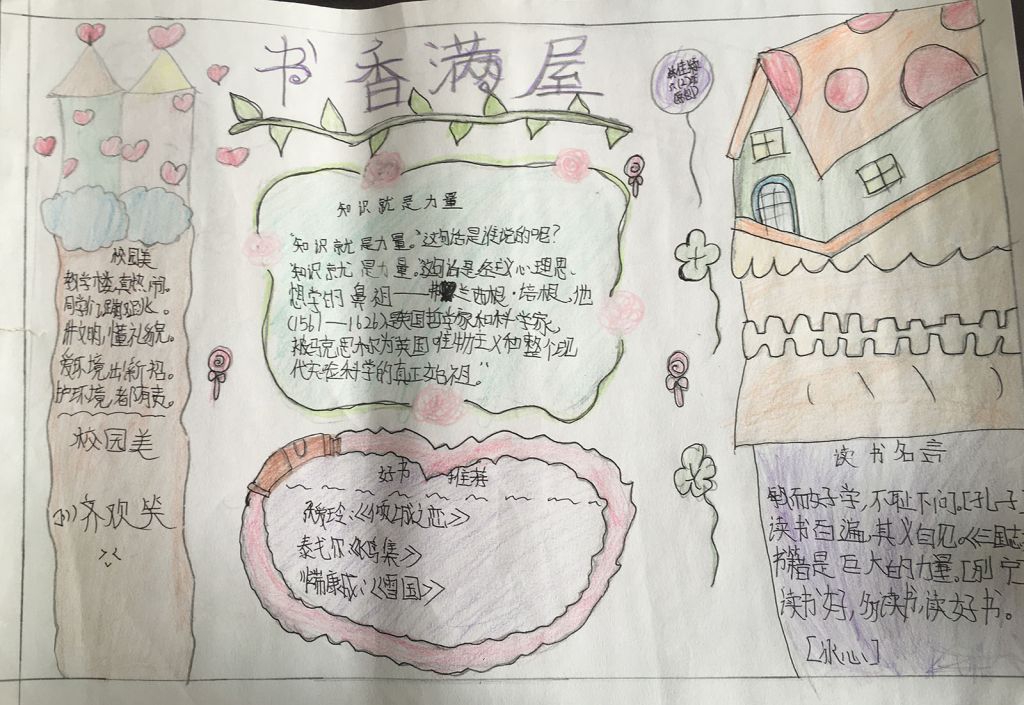 书香满屋
知识就是力量
"知识就是力量。"这句话是谁说的呢?
知识就是力量。这句话是经主义心理思、
想学的鼻祖——弗兰西根·培根,他
(1561—1626)是英国哲学家和科学家。
被马克思称为英国唯物主义和整个现
代实验科学的真正始祖。"
校园美
教学楼,真热闹。
同学们,蹦蹦跳。
讲文明,懂礼貌。
爱环境,出新招。
护环境,都有责。
校园美
齐欢笑
好书推荐
张爱玲:《倾城之恋》
泰戈尔《飞鸟集》
川端康成:《雪国》
读书名言
敏而好学,不耻下问。[孔子
读书百遍,其义自见。《三国志
书籍是巨大的力量。[列宁
读书好,多读书,读好书。
[冰心]